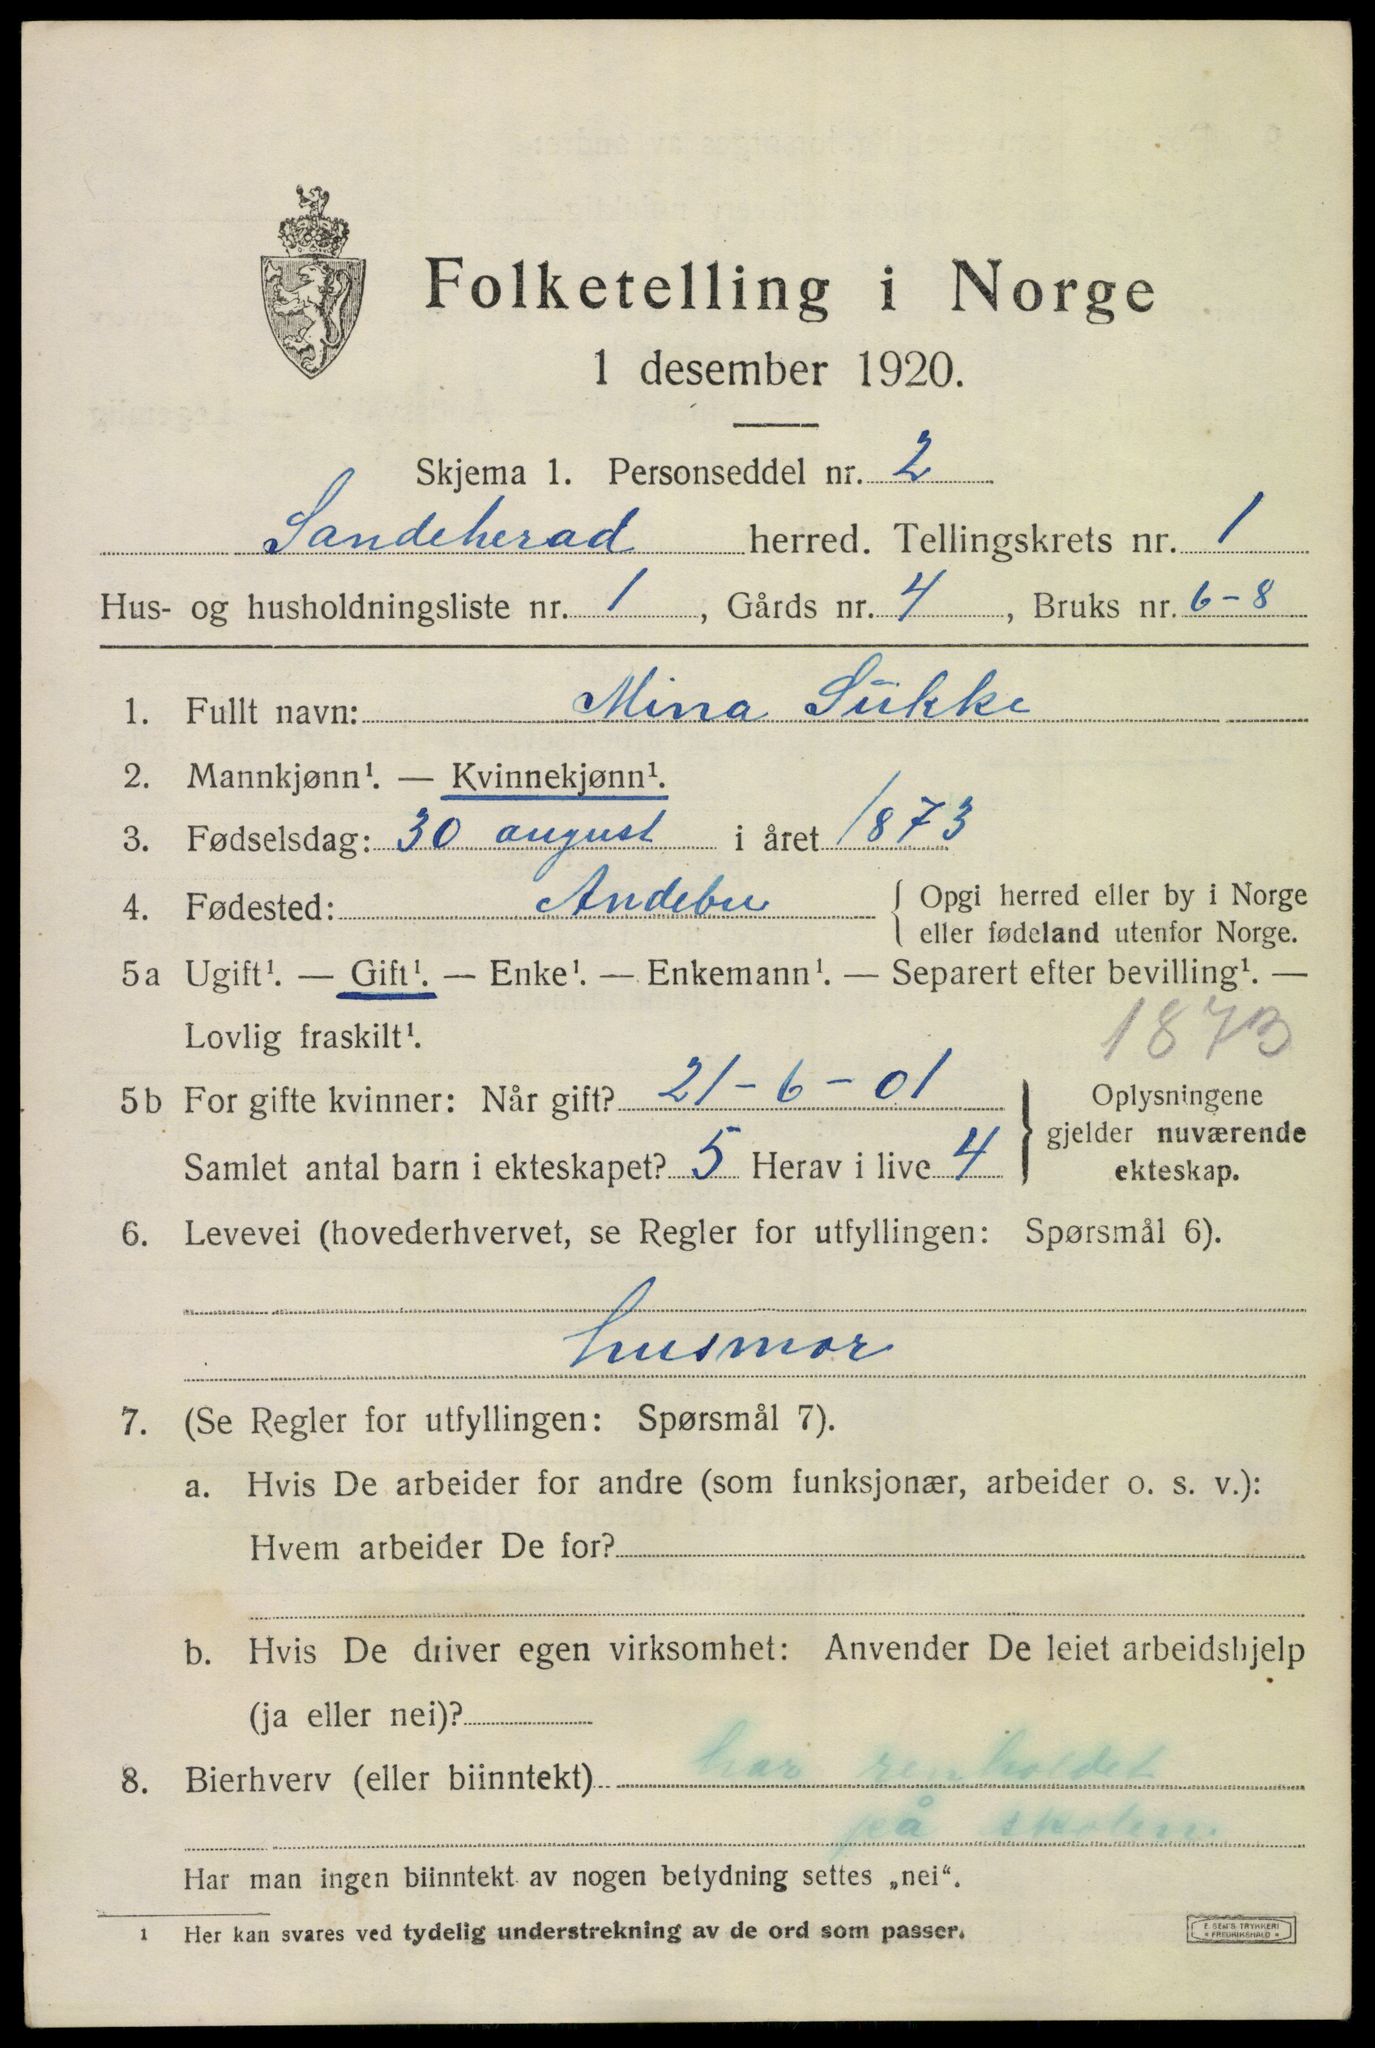 Folketelling i Norge
1 desember 1920.
Skjema 1. Personseddel nr. 2
Sandeherad herred. Tellingskrets nr. 1
Hus- og husholdningsliste nr. 1, Gårds nr. 4, Bruks nr. 6-8
1. Fullt navn: Mina Sükke
2. Mannkjønn¹. — Kvinnekjønn¹.
3. Fødselsdag: 30 august i året 1873
4. Fødested: Andebu { Opgi herred eller by i Norge
eller fødeland utenfor Norge.
5a Ugift¹. — Gift¹. — Enke¹. — Enkemann¹. — Separert efter bevilling¹. —
Lovlig fraskilt¹.
1873
5b For gifte kvinner: Når gift? 21-6-01
Samlet antal barn i ekteskapet? 5 Herav i live 4
} Oplysningene
gjelder nuværende
ekteskap.
6. Levevei (hovederhvervet, se Regler for utfyllingen: Spørsmål 6).
husmor
7. (Se Regler for utfyllingen: Spørsmål 7).
a. Hvis De arbeider for andre (som funksjonær, arbeider o. s. v.):
Hvem arbeider De for?
b. Hvis De driver egen virksomhet: Anvender De leiet arbeidshjelp
(ja eller nei)?
8. Bierhverv (eller biinntekt) har renholdet
på skolen.
Har man ingen biinntekt av nogen betydning settes „nei“.
1 Her kan svares ved tydelig understrekning av de ord som passer.
E. SEM'S TRYKKERI
* FREDRIKSHALD *